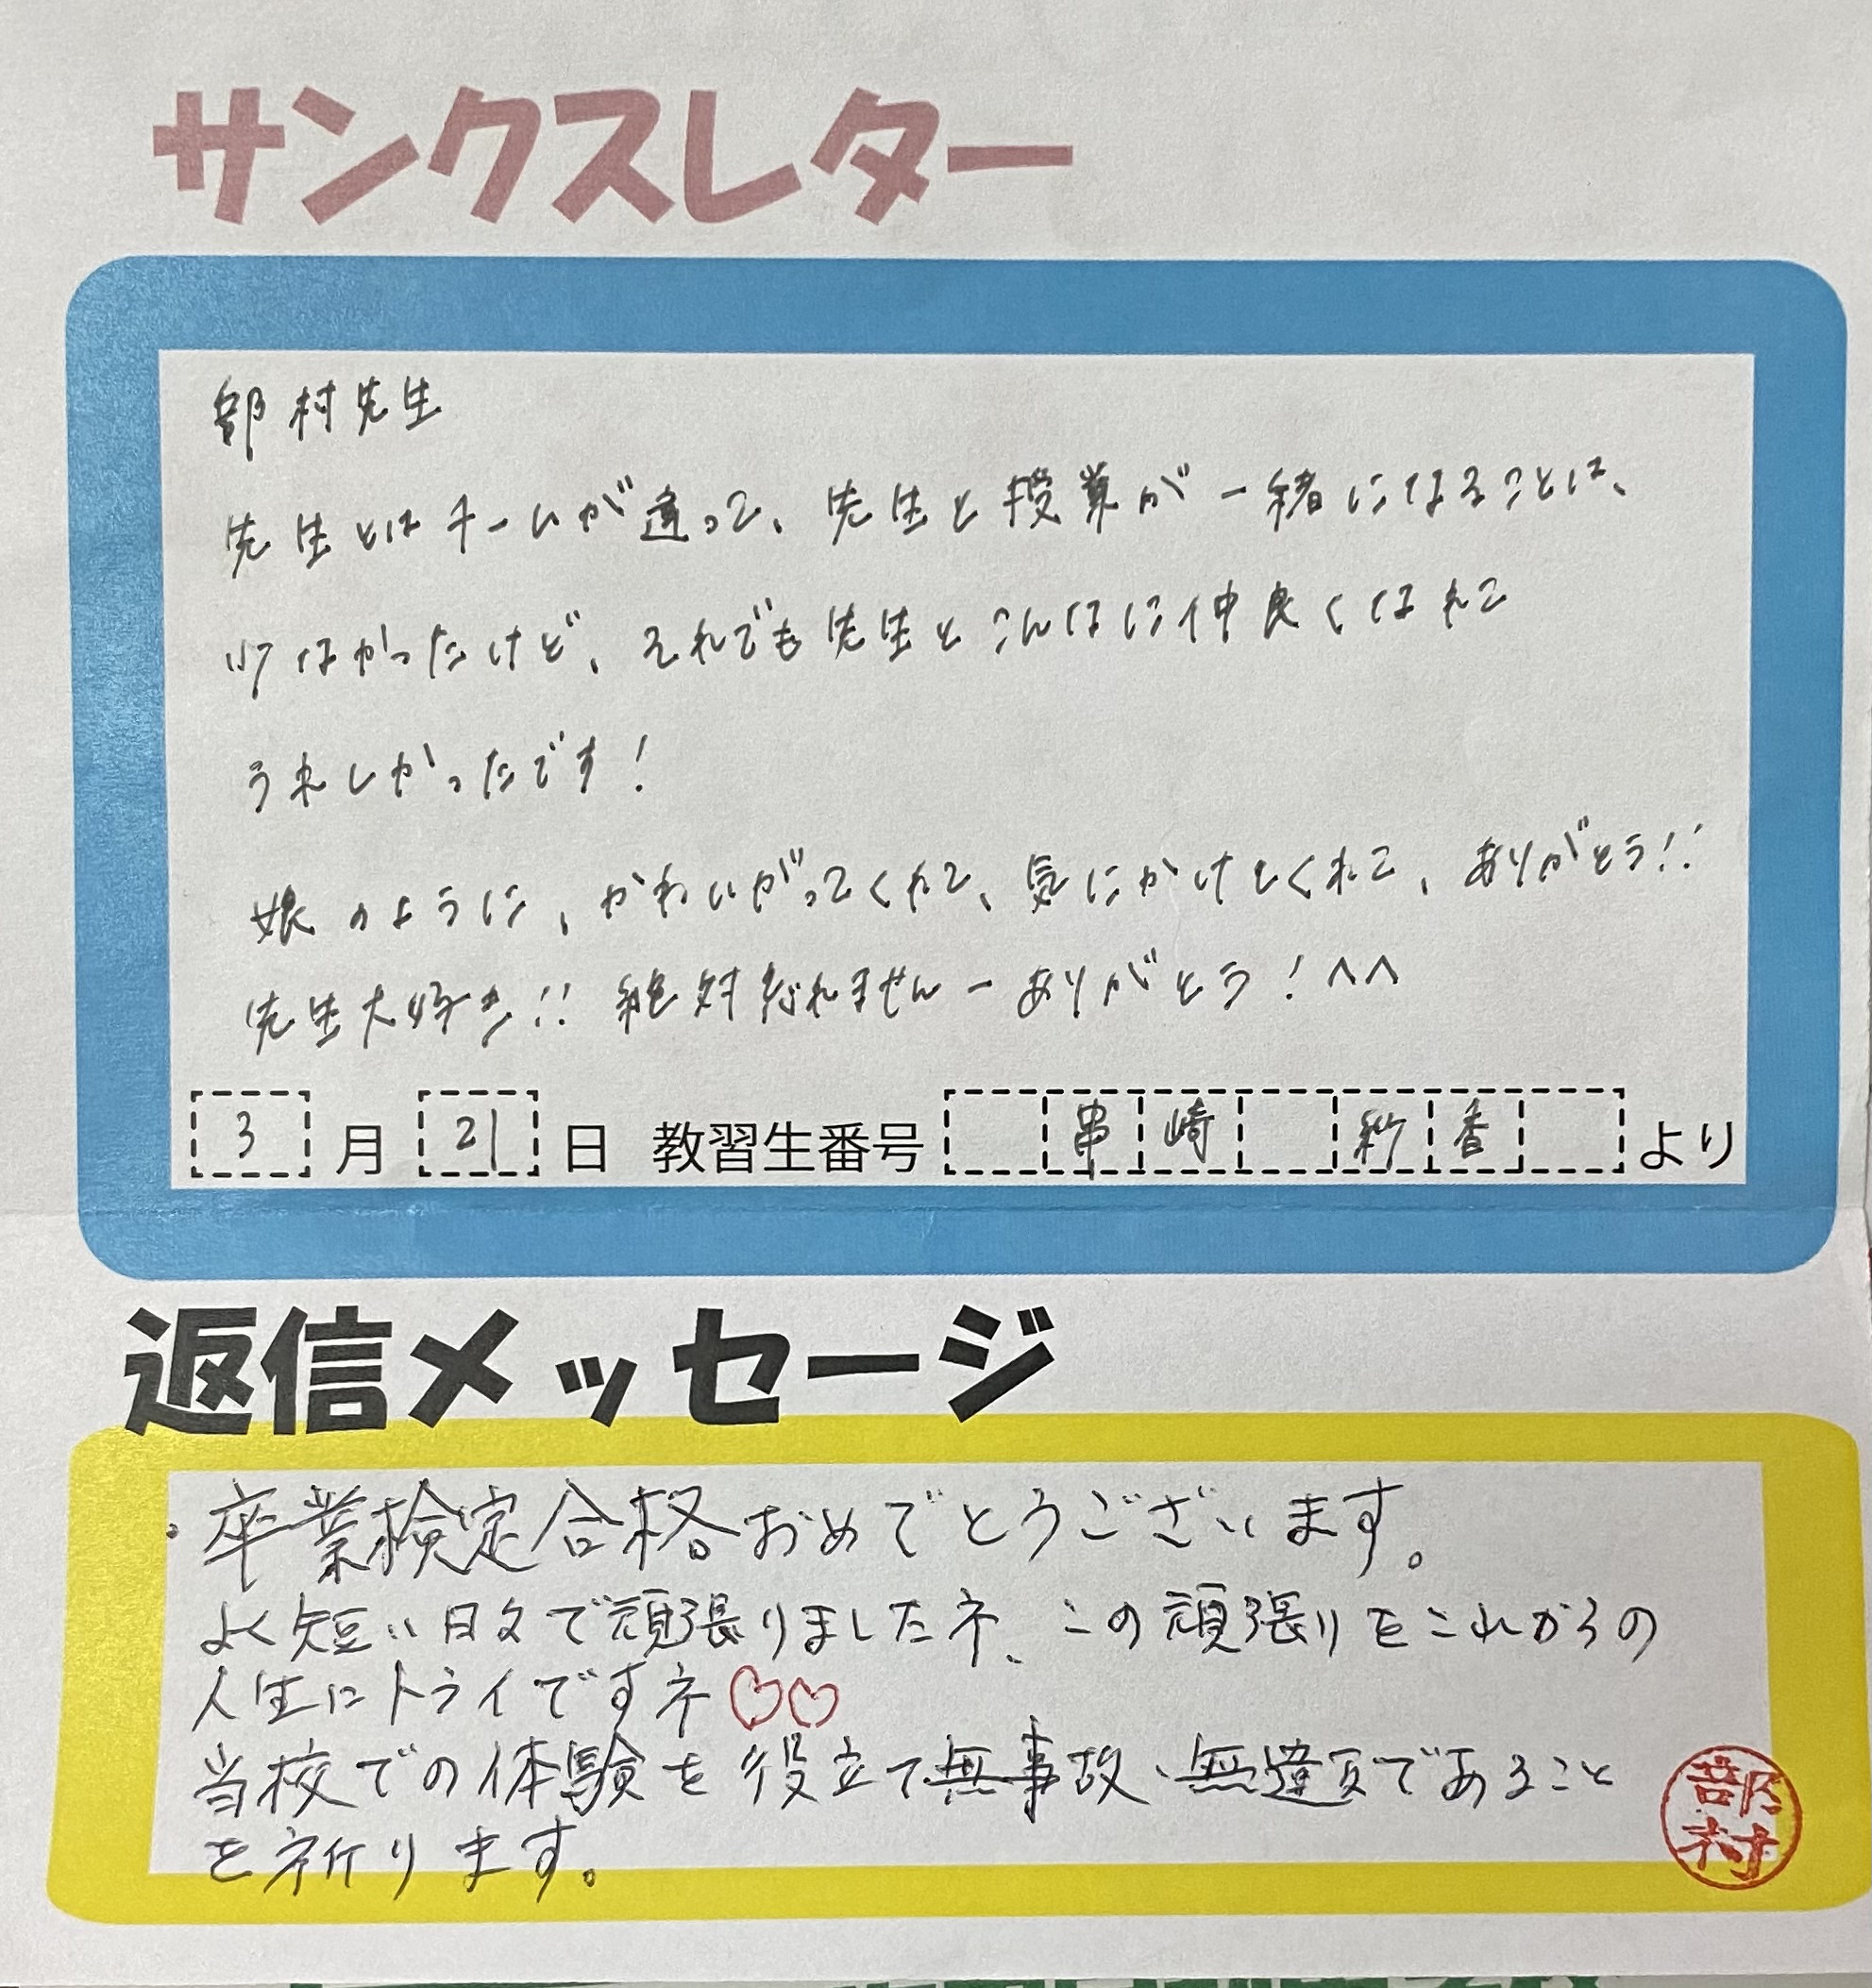 サンクスレター
部村先生
先生とはチームが違って、先生と授業が一緒になることは、
少なかったけど、それでも先生とこんなに仲良くなれて
うれしかったです！
娘のように、かわいがってくれて、気にかけてくれて、ありがとう!!
先生大好き!! 絶対忘れませんーありがとう！^^
3月21日 教習生番号 串崎 紗香 より
返信メッセージ
・卒業検定合格おめでとうございます。
よく短い日々で頑張りましたネ、この頑張りをこれからの
人生にトライですネ♡♡
当校での体験を役立て無事故、無違反であること
を祈ります。
部村